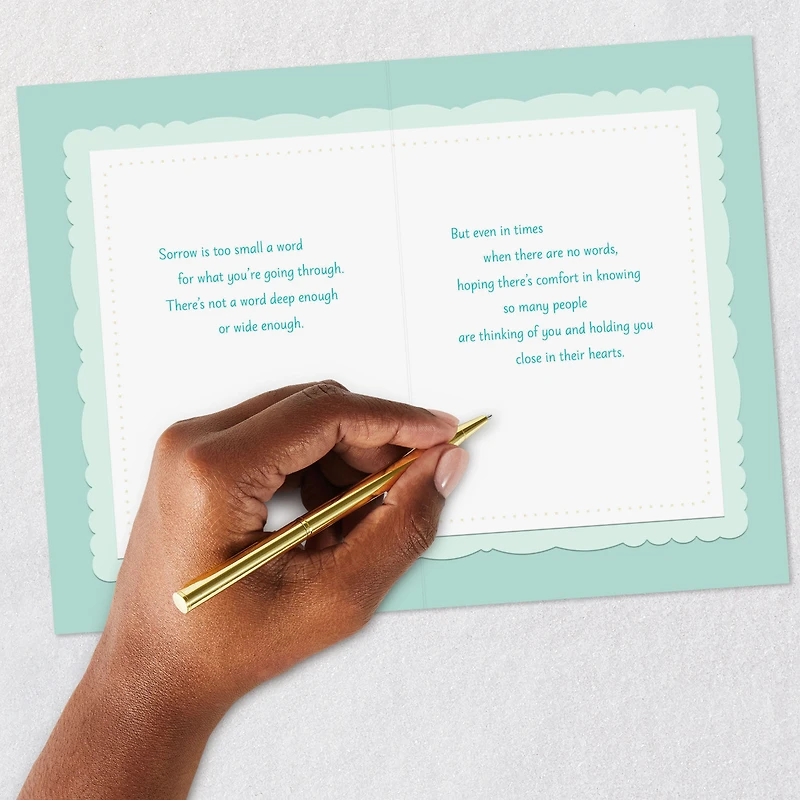 Sorrow is too small a word
for what you're going through.
There's not a word deep enough
or wide enough.
But even in times
when there are no words,
hoping there's comfort in knowing
so many people
are thinking of you and holding you
close in their hearts.